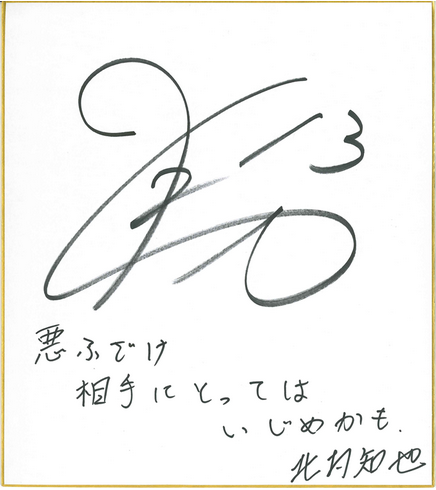 3
悪ふざけ
相手にとっては
いじめかも.
北村知也